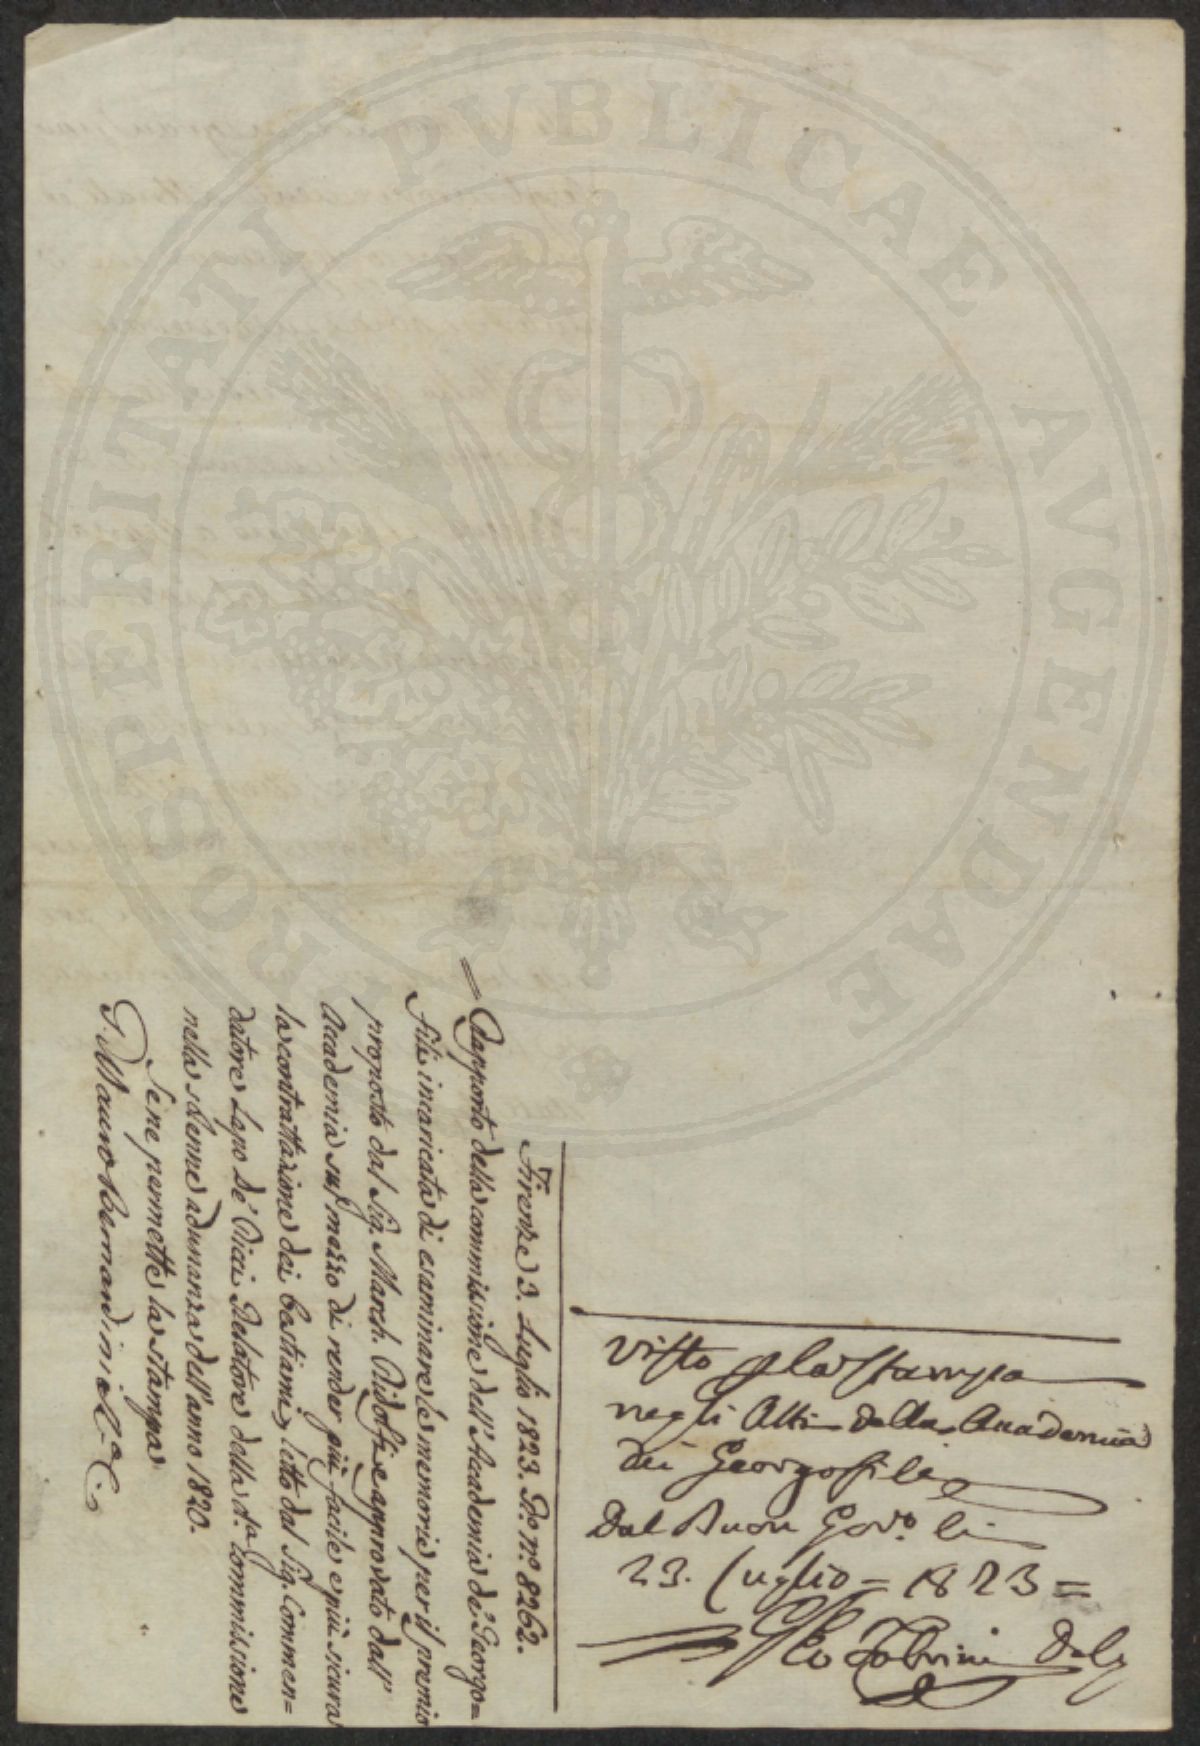 PROSPERITATI PVBLICAE AVGENDAE
Firenze 3. Luglio 1823. Po. no. 8262.
= Rapporto della commissione dell'Accademia de' Georgo=
fili incaricata di esaminare le memorie per il premio
proposto dal Sig. March. Ridolfi e approvato dall'
Accademia sul mezzo di render più facile e più sicura
la contrattazione dei bestiami, letto dal Sig. Commen=
datore Lapo de' Ricci Relatore della da. Commissione
nella solenne adunanza dell'anno 1820.
Se ne permette la stampa
G. Mauro Bernardini
Visto p la Stampa
negli Atti della Accademia
dei Georgofili
Dal Buon Govo. li
23. Luglio = 1823 =